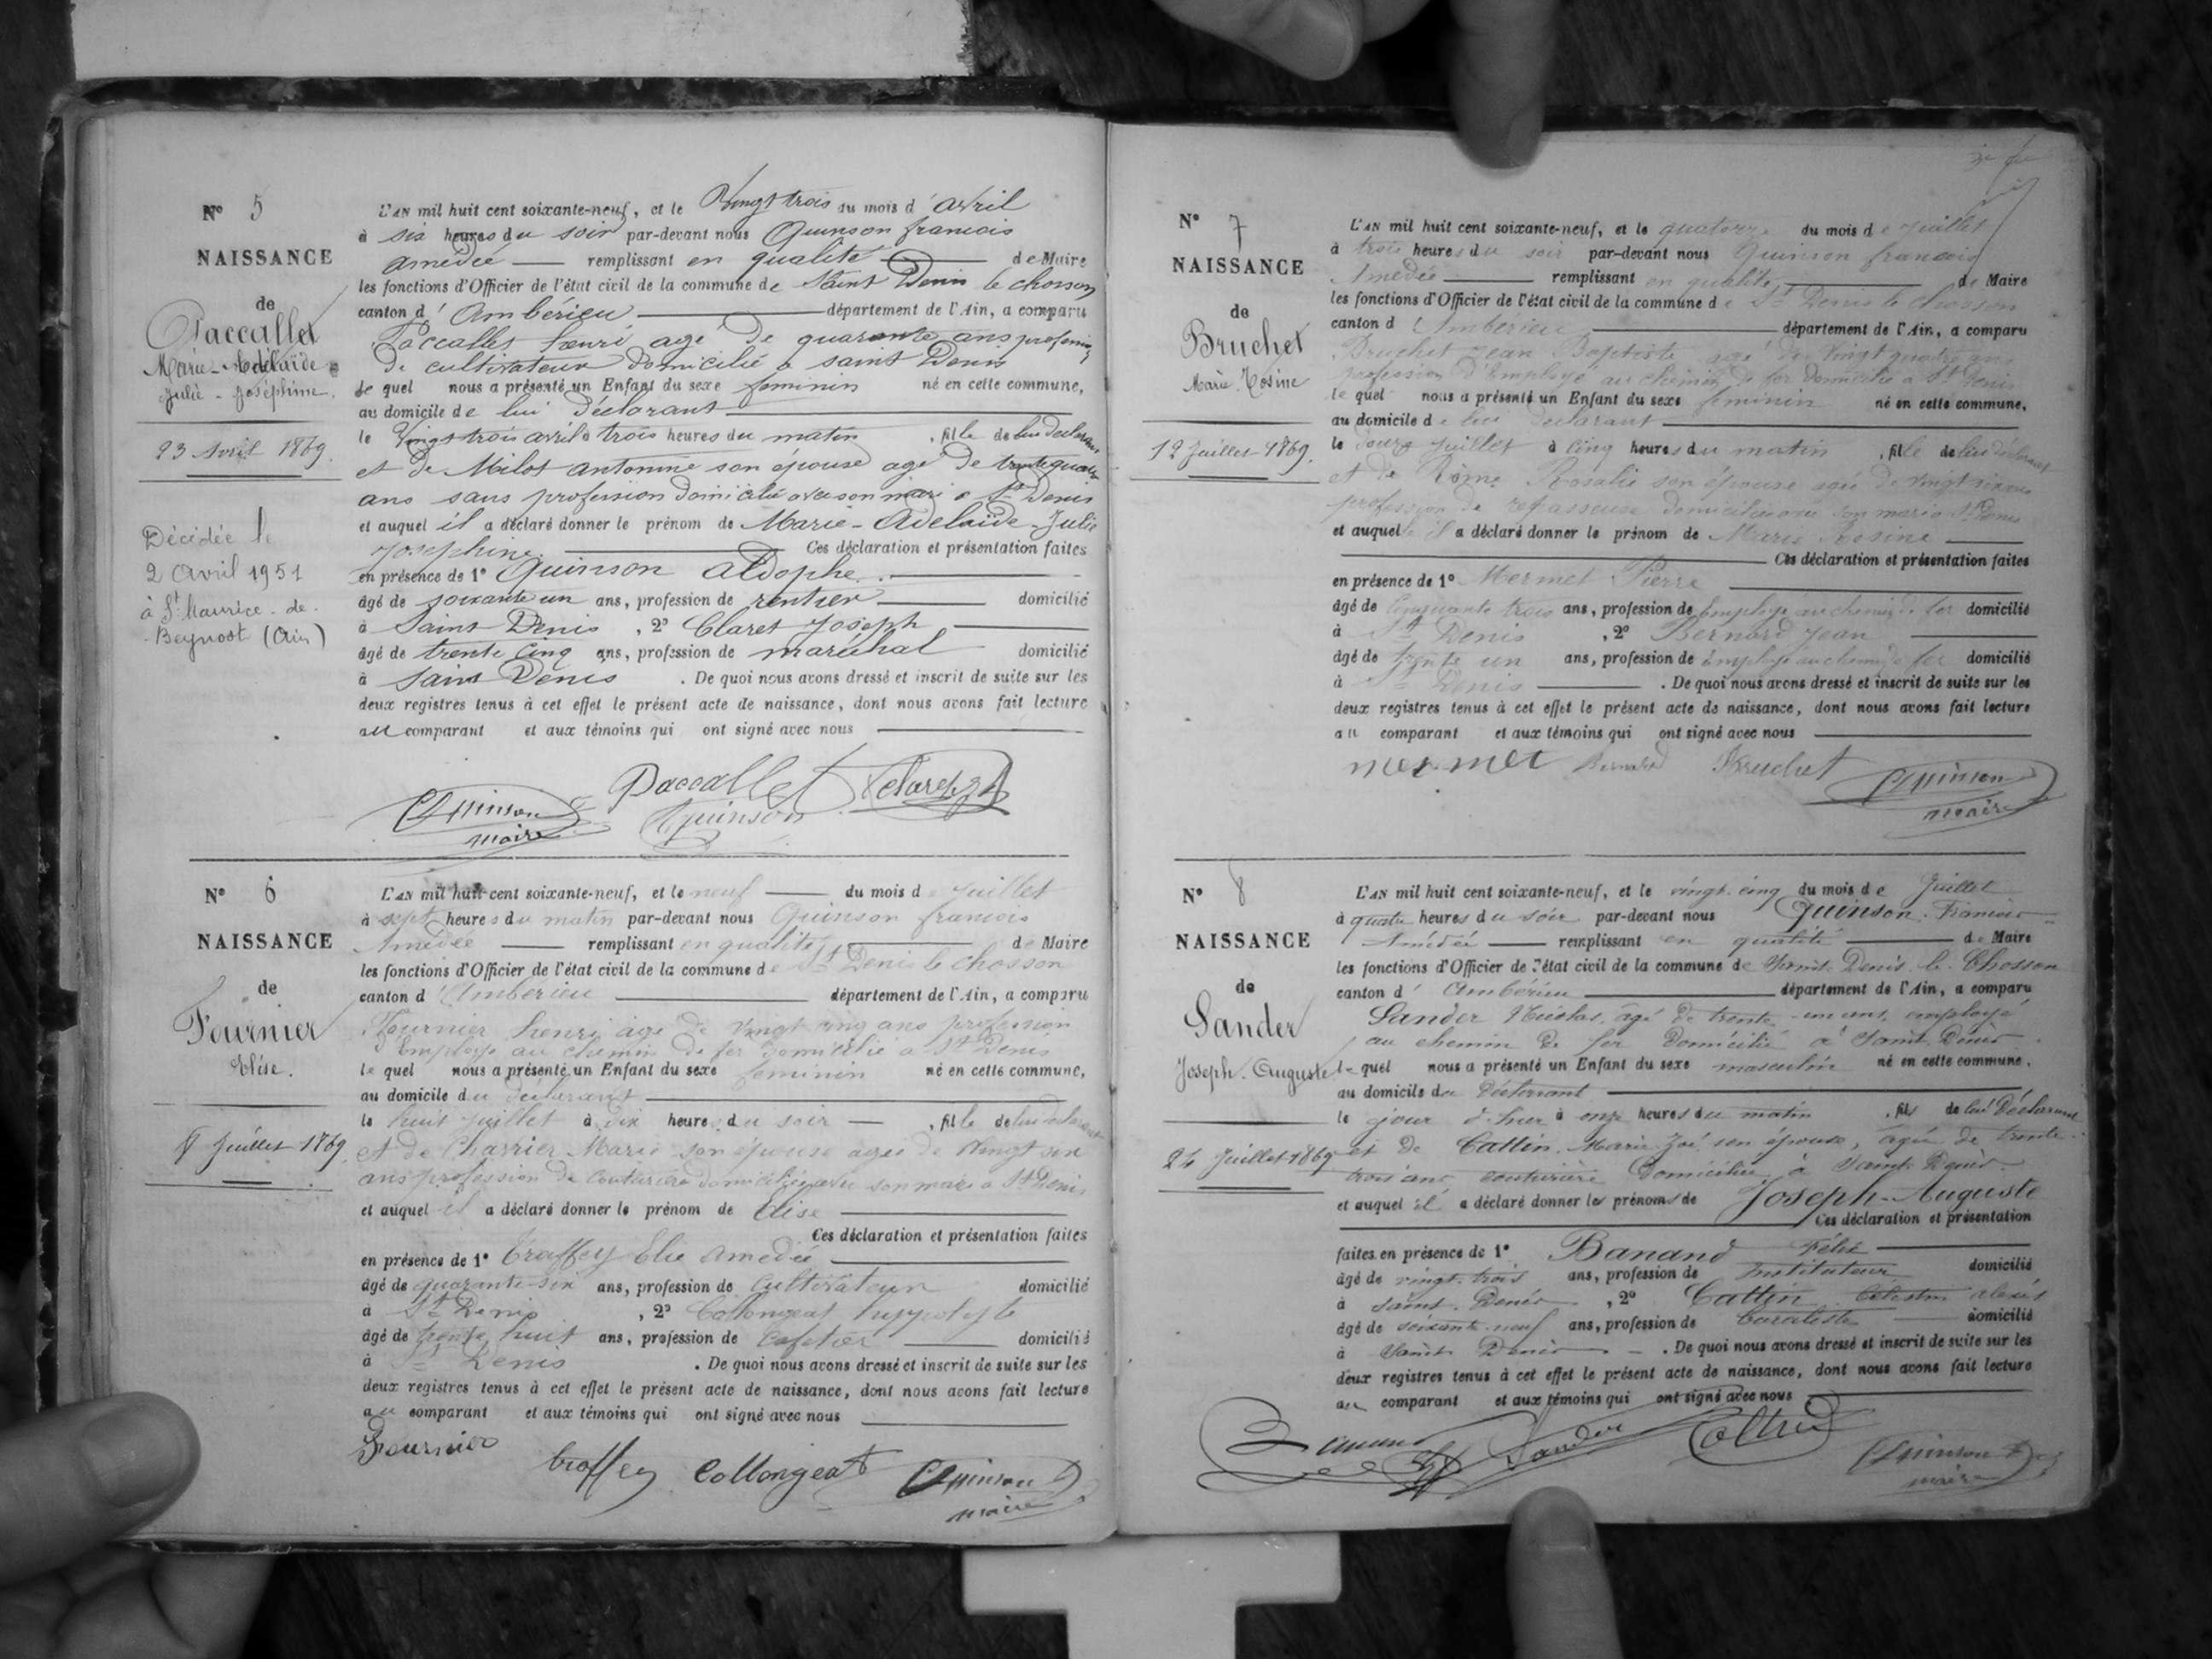 N° 5
NAISSANCE
de
Paccallet
Marie-Adelaïde
Julie-Joséphine.
23 Avril 1869.
Décédée le
2 Avril 1951
à St Maurice-de-
Beynost (Ain)
L'AN mil huit cent soixante-neuf, et le Vingt trois du mois d'avril
à six heures du soir par-devant nous Quinson francois
amédée — remplissant en qualité — de Maire
les fonctions d'Officier de l'état civil de la commune de Saint Denis le chosson
canton d'Ambérieu — département de l'Ain, a comparu
Paccallet henri agé de quarante ans profession
de cultivateur domicilié a saint Denis
le quel nous a présenté un Enfant du sexe feminin né en cette commune,
au domicile de lui déclarant
le Vingt trois avril à trois heures du matin, fille de lui declarant
et de Milot antonine son épouse agé de trente quatre
ans sans profession domicilié avec son mari a St Denis
et auquel il a déclaré donner le prénom de Marie-Adelaïde-Julie
Josephine. — Ces déclaration et présentation faites
en présence de 1° Quinson Aldophe.
âgé de soixante un ans, profession de rentier — domicilié
à Saint Denis, 2° Claret Joseph
âgé de trente cinq ans, profession de maréchal domicilié
à Saint Denis. De quoi nous avons dressé et inscrit de suite sur les
deux registres tenus à cet effet le présent acte de naissance, dont nous avons fait lecture
au comparant et aux témoins qui ont signé avec nous
Paccallet Claret
Quinson
maire
Quinson
N° 6
NAISSANCE
de
Fournier
Elise.
8 Juillet 1869.
L'AN mil huit cent soixante-neuf, et le neuf — du mois de Juillet
à sept heures du matin par-devant nous Quinson francois
Amédée — remplissant en qualité — de Maire
les fonctions d'Officier de l'état civil de la commune de St Denis le chosson
canton d'Ambérieu — département de l'Ain, a comparu
Fournier henri âgé de vingt cinq ans profession
d'Employé au chemin de fer domicilié a St Denis
le quel nous a présenté un Enfant du sexe feminin né en cette commune,
au domicile du déclarant
le huit juillet à dix heures du soir —, fille de lui déclarant
et de Charrier Marie son épouse agée de Vingt six
ans profession de couturière domiciliée avec son mari a St Denis
et auquel il a déclaré donner le prénom de Elise
Ces déclaration et présentation faites
en présence de 1° Traffey Elie amedée
âgé de quarante-six ans, profession de Cultivateur domicilié
à St Denis, 2° Collongeat hyppolyte
âgé de trente huit ans, profession de Cafetier — domicilié
à St Denis. De quoi nous avons dressé et inscrit de suite sur les
deux registres tenus à cet effet le présent acte de naissance, dont nous avons fait lecture
au comparant et aux témoins qui ont signé avec nous
Fournier traffey Collongeat Quinson
maire
N° 7
NAISSANCE
de
Bruchet
Marie Rosine
12 Juillet 1869.
L'AN mil huit cent soixante-neuf, et le quatorze du mois de Juillet
à trois heures du soir par-devant nous Quinson francois
Amédée — remplissant en qualité — de Maire
les fonctions d'Officier de l'état civil de la commune de St Denis le Chosson
canton d'Ambérieu — département de l'Ain, a comparu
Bruchet Jean Baptiste agé de Vingt quatre ans
profession d'Employé au chemin de fer domicilié a St Denis
le quel nous a présenté un Enfant du sexe feminin né en cette commune,
au domicile de lui declarant
le douze Juillet à cinq heures du matin, fille de lui déclarant
et de Rome Rosalie son épouse agée de vingt six ans
profession de repasseuse domiciliée avec son mari a St Denis
et auquel il a déclaré donner le prénom de Marie Rosine
Ces déclaration et présentation faites
en présence de 1° Mermet Pierre
âgé de Cinquante trois ans, profession de Employé au chemin de fer domicilié
à St Denis, 2° Bernard Jean
âgé de trente un ans, profession de Employé au chemin de fer domicilié
à St Denis — . De quoi nous avons dressé et inscrit de suite sur les
deux registres tenus à cet effet le présent acte de naissance, dont nous avons fait lecture
au comparant et aux témoins qui ont signé avec nous
mermet Bernard Bruchet Quinson
maire
N° 8
NAISSANCE
de
Sander
Joseph-Auguste
24 Juillet 1869
L'AN mil huit cent soixante-neuf, et le vingt-cinq du mois de Juillet
à quatre heures du soir par-devant nous Quinson François
Amédée — remplissant en qualité — de Maire
les fonctions d'Officier de l'état civil de la commune de Saint-Denis-le-Chosson
canton d'Ambérieu — département de l'Ain, a comparu
Sander Nicolas, âgé de trente-un ans, employé
au chemin de fer domicilié à Saint-Denis
le quel nous a présenté un Enfant du sexe masculin né en cette commune.
au domicile du Déclarant
le jour d'hier à onze heures du matin, fils de lui Déclarant
et de Cattin, Marie son épouse, âgée de trente-
trois ans couturière domiciliée à Saint-Denis.
et auquel il a déclaré donner les prénoms de Joseph-Auguste
Ces déclaration et présentation
faites en présence de 1° Banand Félix
âgé de vingt-trois ans, profession de Instituteur domicilié
à Saint-Denis, 2° Cattin Célestin alexis
âgé de soixante-neuf ans, profession de — domicilié
à Saint-Denis — . De quoi nous avons dressé et inscrit de suite sur les
deux registres tenus à cet effet le présent acte de naissance, dont nous avons fait lecture
au comparant et aux témoins qui ont signé avec nous
Banand Sander Cattin Quinson
maire